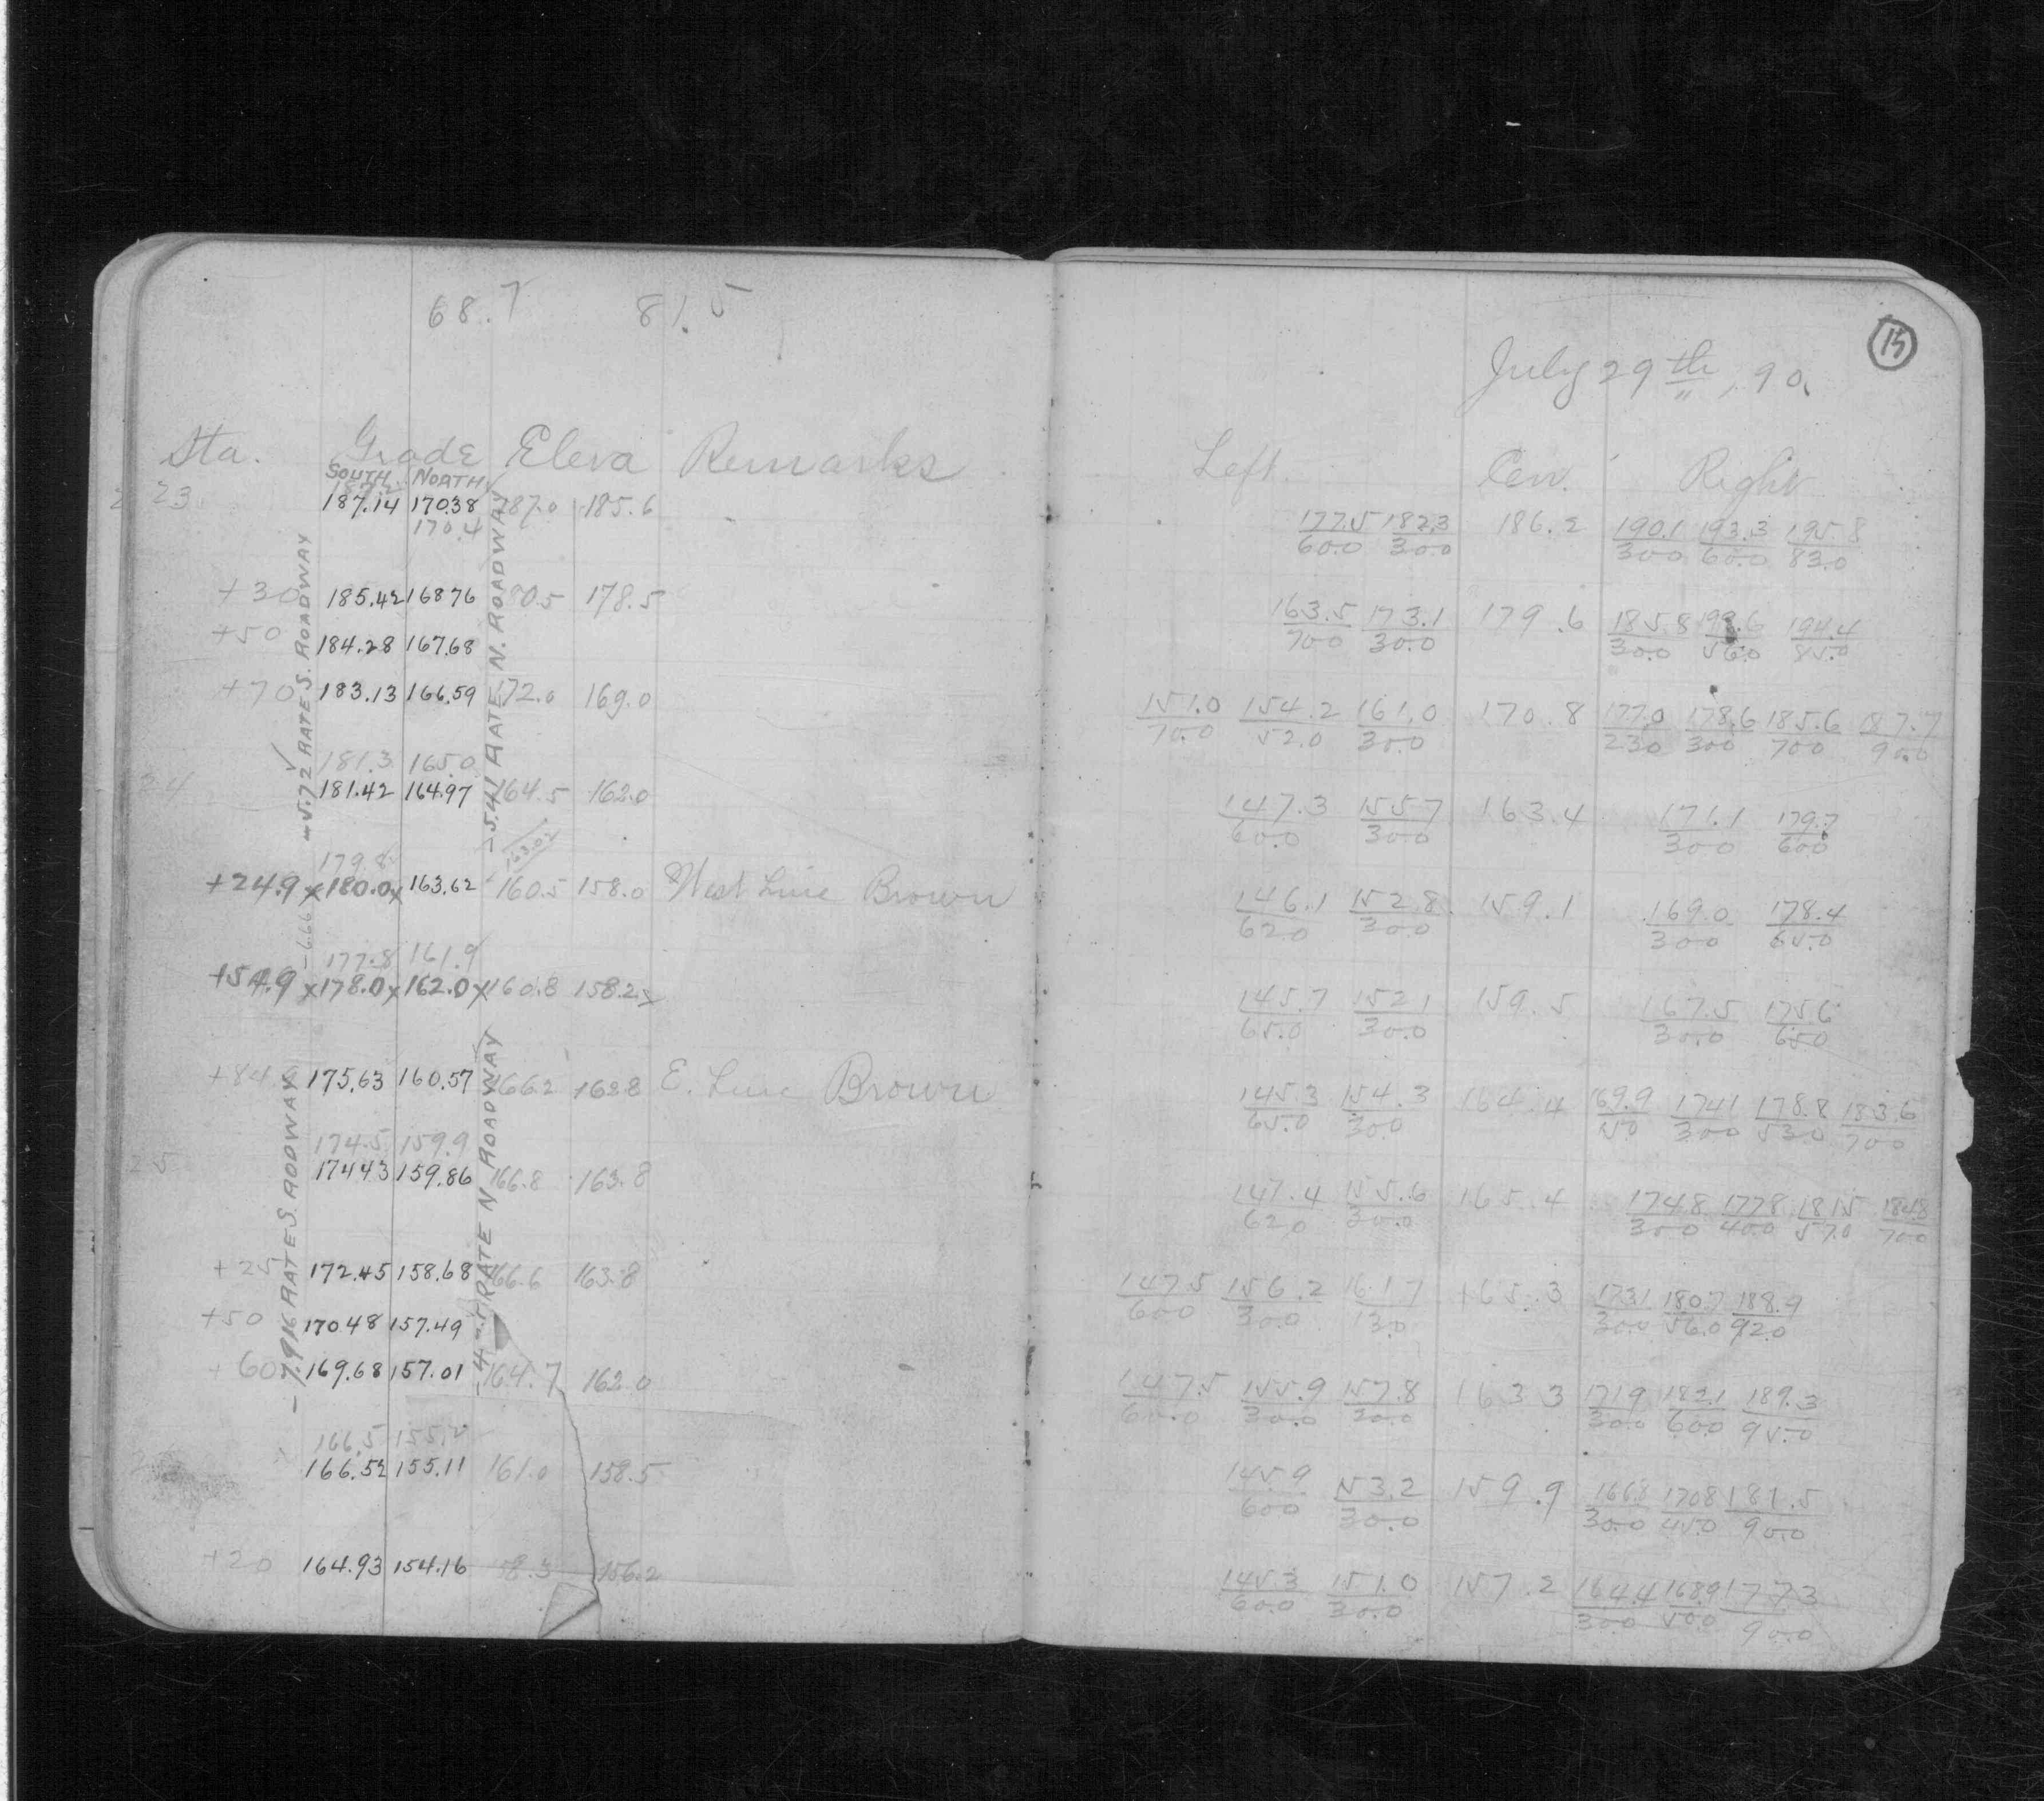 68.7 81.5
15
July 29th, 90.
Sta. Grade Eleva Remarks Left Cen. Right
SOUTH NORTH
187.2
23 187.14 170.38 187.0 185.6 177.5/60.0 182.3/30.0 186.2 190.1/30.0 193.3/60.0 195.8/83.0
170.4
+30 185.42 168.76 180.5 178.5 163.5/70.0 173.1/30.0 179.6 185.8/30.0 194.4/85.0
+50 184.28 167.68
+70 183.13 166.59 172.0 169.0 151.0/70.0 154.2/52.0 161.0/30.0 170.8 177.0/23.0 178.6/30.0 185.6/70.0 187.7/90.0
181.3 165.0
24 181.42 164.97 164.5 162.0 147.3/60.0 155.7/30.0 163.4 171.1/30.0 179.7/60.0
-5.72 RATE S. ROADWAY
-5.41 RATE N. ROADWAY
163.02
179.8
+24.9 x 180.0 x 163.62 160.5 158.0 West Line Brown 146.1/62.0 152.8/30.0 159.1 169.0/30.0 178.4/65.0
-6.66
177.8 161.9
+54.9 x 178.0 x 162.0 x 160.8 158.2 x 145.7/65.0 152.1/30.0 159.5 167.5/30.0 175.6/65.0
+84.9 175.63 160.57 166.2 163.8 E. Line Brown 145.3/65.0 154.3/30.0 164.4 169.9/15.0 174.1/30.0 178.8/53.0 183.6/70.0
174.5 159.9
25 174.43 159.86 166.8 163.8 147.4/62.0 155.6/30.0 165.4 174.8/30.0 177.8/40.0 181.5/57.0 184.8/70.0
+25 172.45 158.68 166.6 163.8 147.5/60.0 156.2/30.0 161.7/13.0 165.3 173.1/30.0 180.7/56.0 188.9/92.0
+50 170.48 157.49
+60 169.68 157.01 164.7 162.0 147.5/60.0 155.9/30.0 157.8/20.0 163.3 171.9/30.0 182.1/60.0 189.3/95.0
-7.916 RATE S. RODWAY
RATE N ROADWAY
166.5 155.2
166.52 155.11 161.0 158.5 145.9/60.0 153.2/30.0 159.9 166.8/30.0 170.8/45.0 181.5/90.0
+20 164.93 154.16 158.3 156.2 145.3/60.0 151.0/30.0 157.2 164.4/30.0 168.9/50.0 177.3/90.0